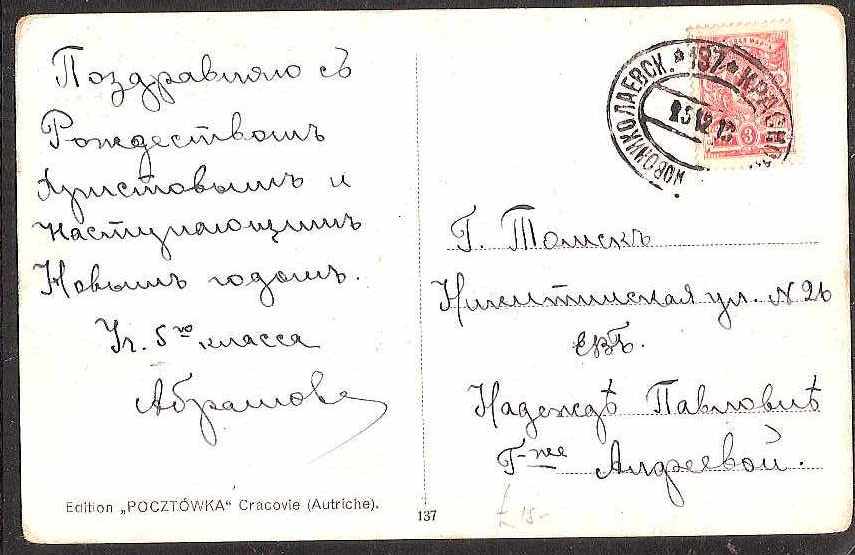 Поздравляю съ
Рождествомъ
Христовымъ и
наступающимъ
Новымъ годомъ.
Уч. 5го класса
Абрамова
Edition „POCZTÓWKA“ Cracovie (Autriche).
137
НОВОНИКОЛАЕВСК. * 197 * КРАСНО
12
3
Г. Томскъ
Никитинская ул. N 26
ЕВБ.
Надеждѣ Павловнѣ
Г-же Андреевой.
£ 15-